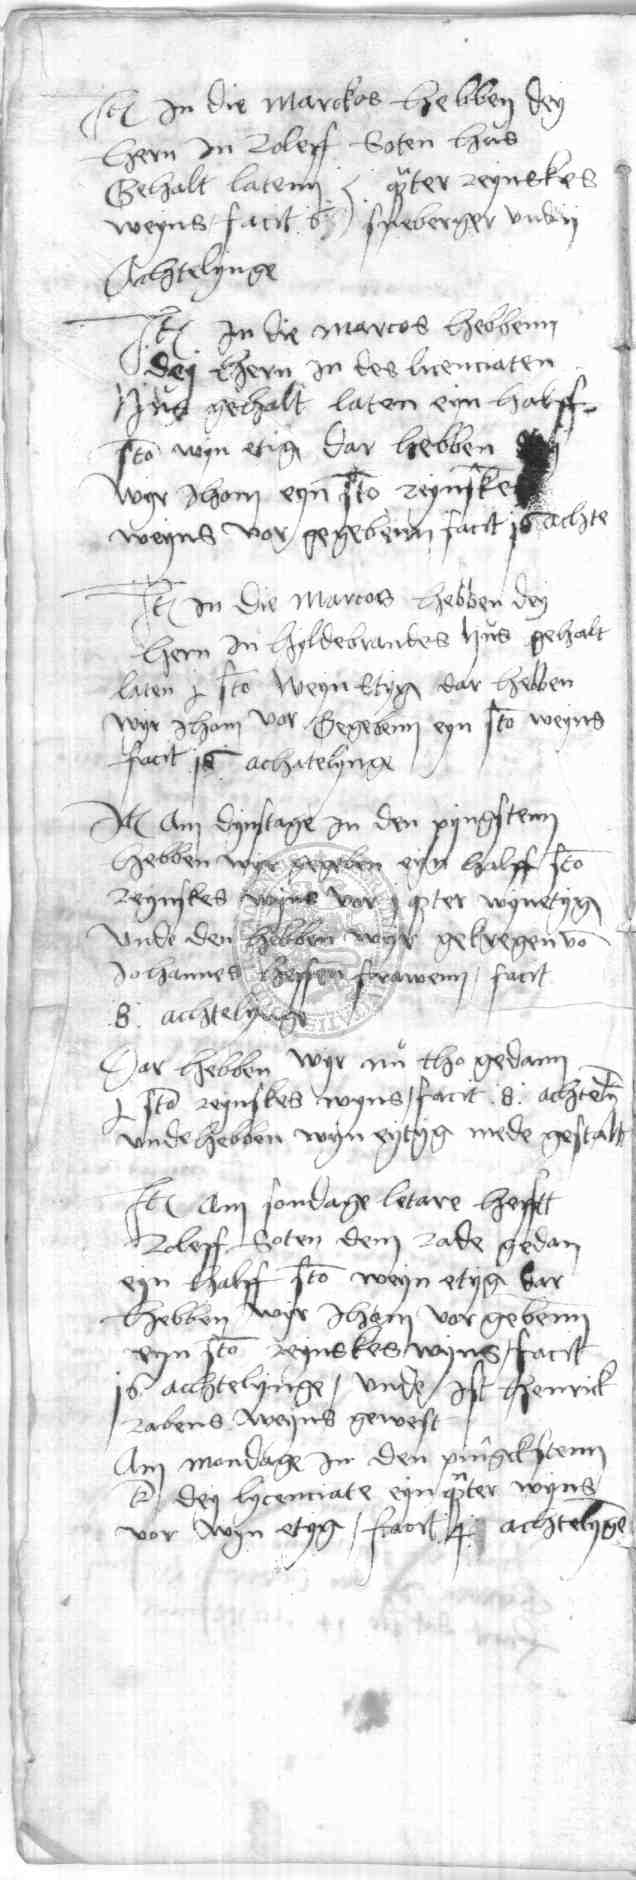 Jt In die Marckos hebben dey
hern In Roleff Soten hůs
Gehalt latenn qrter reynskes
weyns facit spieberger
Achtelynge
Jt In die Marcos hebbenn
dey hern in des licenciaten
Hůs gehalt laten eyn halff
sto wyn etig dar hebben
wyr Jhom eyn sto reynske
weyns vor gegebenn facit 16 achte
Jt In die Marcos hebben dey
hern In hyldebrandes hůs gehalt
laten j sto weyn Etyg dar hebben
wyr Jhom vor Gegebenn eyn sto weyns
facit 16 achatelynge
Jt Am dynstage in den pyngstenn
hebben wyr gegeben eyn halff sto
reynskes wyns vor j qrter wynetyg
vnde den hebben wyr gekregen vō
Johannes hessen frawenn / facit
.8. achtelynge
Dar hebben wyr nů tho gedann
j sto reynskes wyns / facit .8. achtely
vnde hebben wyn eytyg mede gestalt
Jt Am sondage letare hefft
Roleff Soten dem Rade gedan
eyn halff sto weyn etyg dar
hebben wyr Jhom vor gebenn
eyn sto reynskes wyns / facit
16 achtelynge / vnde / Jst Henrick
Rabens weyns gewest
Am mondage in den pingckstenn
dey lycenciate eyn qrter wyns
vor wyn etyg / facit 4 achtelyge